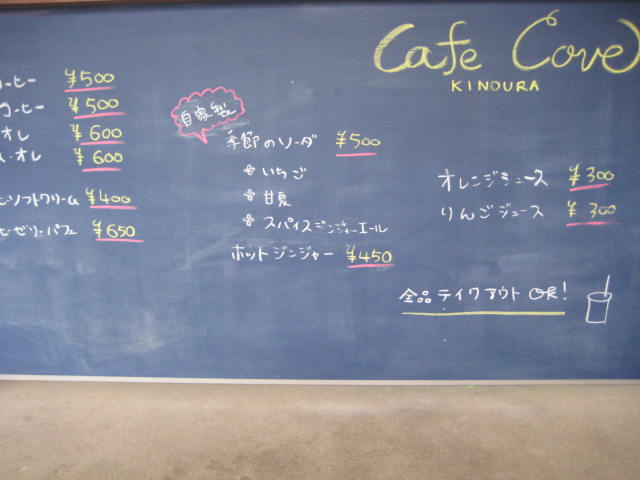 Cafe Cove
KINOURA
コーヒー ¥500
コーヒー ¥500
オレ ¥600
ル・オレ ¥600
ヒーソフトクリーム ¥400
ヒーゼリーパフェ ¥650
自家製
季節のソーダ ¥500
いちご
甘夏
スパイスジンジャーエール
ホットジンジャー ¥450
オレンジジュース ¥300
りんごジュース ¥300
全品テイクアウトOK!